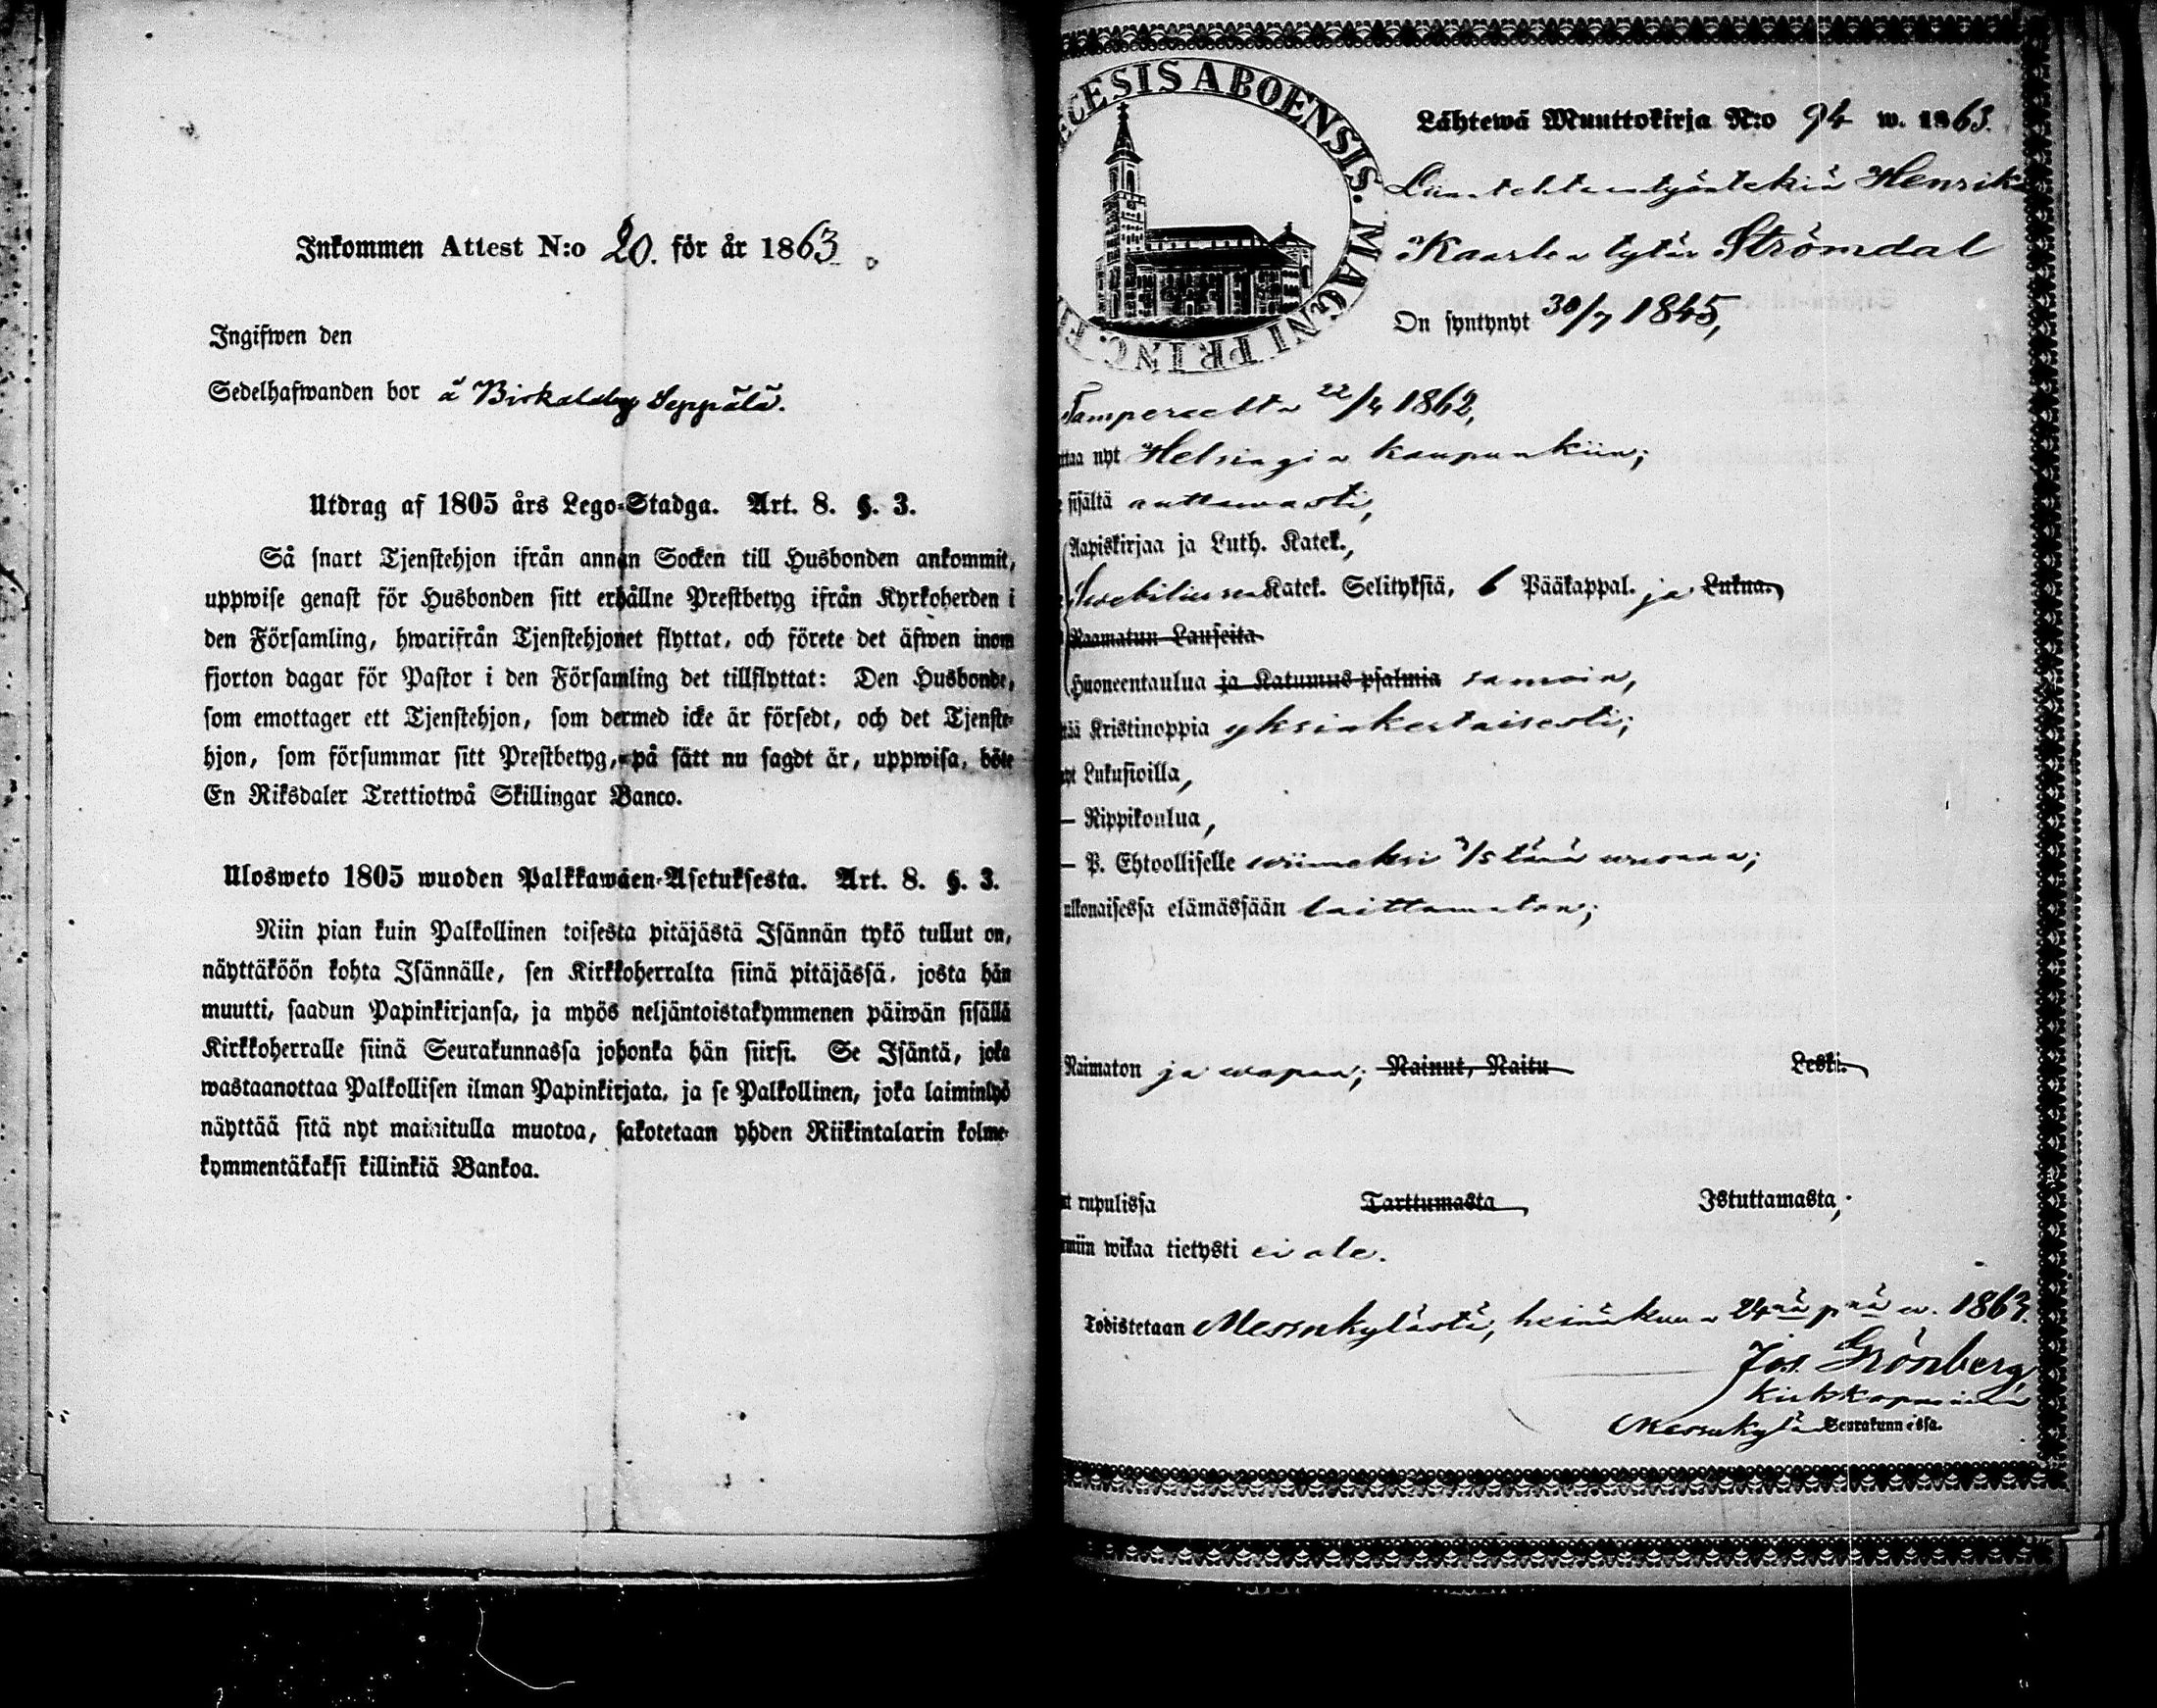 Inkommen Attest N:o 20. för år 1863
Ingifwen den
Sedelhafwanden bor å Birkala by Seppälä.
Utdrag af 1805 års Lego-Stadga. Art. 8. §. 3.
Så snart Tjenstehjon ifrån annan Socken till Husbonden ankommit,
uppwise genast för Husbonden sitt erhållne Prestbetyg ifrån Kyrkoherden i
den Församling, hwarifrån Tjenstehjonet flyttat, och förete det äfwen inom
fjorton dagar för Pastor i den Församling det tillflyttat: Den Husbonde,
som emottager ett Tjenstehjon, som dermed icke är försedt, och det Tjenste-
hjon, som försummar sitt Prestbetyg, på sätt nu sagdt är, uppwisa, böte
En Riksdaler Trettiotwå Skillingar Banco.
Ulosweto 1805 wuoden Palkkawäen-Asetuksesta. Art. 8. §. 3.
Niin pian kuin Palkollinen toisesta pitäjästä Isännän tykö tullut on,
näyttäköön kohta Isännälle, sen Kirkkoherralta siinä pitäjässä, josta hän
muutti, saadun Papinkirjansa, ja myös neljäntoistakymmenen päiwän sisällä
Kirkkoherralle siinä Seurakunnassa johonka hän siirsi. Se Isäntä, joka
wastaanottaa Palkollisen ilman Papinkirjata, ja se Palkollinen, joka laiminlyö
näyttää sitä nyt mainitulla muotoa, sakotetaan yhden Riikintalarin kolme-
kymmentäkaksi killinkiä Bankoa.
ECESIS ABOENSIS. MAGNI PRINC. F
Lähtewä Muuttokirja N:o 94 w. 1863.
Henrika
Kaarlen tytär Strömdal
On syntynyt 30/7 1845,
Tampereelta 22/4 1862,
ttaa nyt Helsingin kaupunkiin;
sisältä auttawasti,
Aapiskirjaa ja Luth. Katek.,
Swebiliusen Katek. Selityksiä, 6 Pääkappal. ja Lukua.
Raamatun Lauseita
Huoneentaulua ja Katumus psalmia samoin,
tää Kristinoppia yksinkertaisesti;
yt Lukusioilla,
— Rippikoulua,
— P. Ehtoolliselle wiimeksi 3/5 tänä wuonna;
ulkonaisessa elämässään laittamaton;
Naimaton ja wapaa; Nainut, Naitu Leski.
ut rupulissa Tarttumasta Istuttamasta;
miin wikaa tietysti ei ole.
Todistetaan Messukylästä, heinäkuun 24nä pnä w. 1863.
Jos. Grönberg,
Kirkkoherra
Messukylän Seurakunnassa.